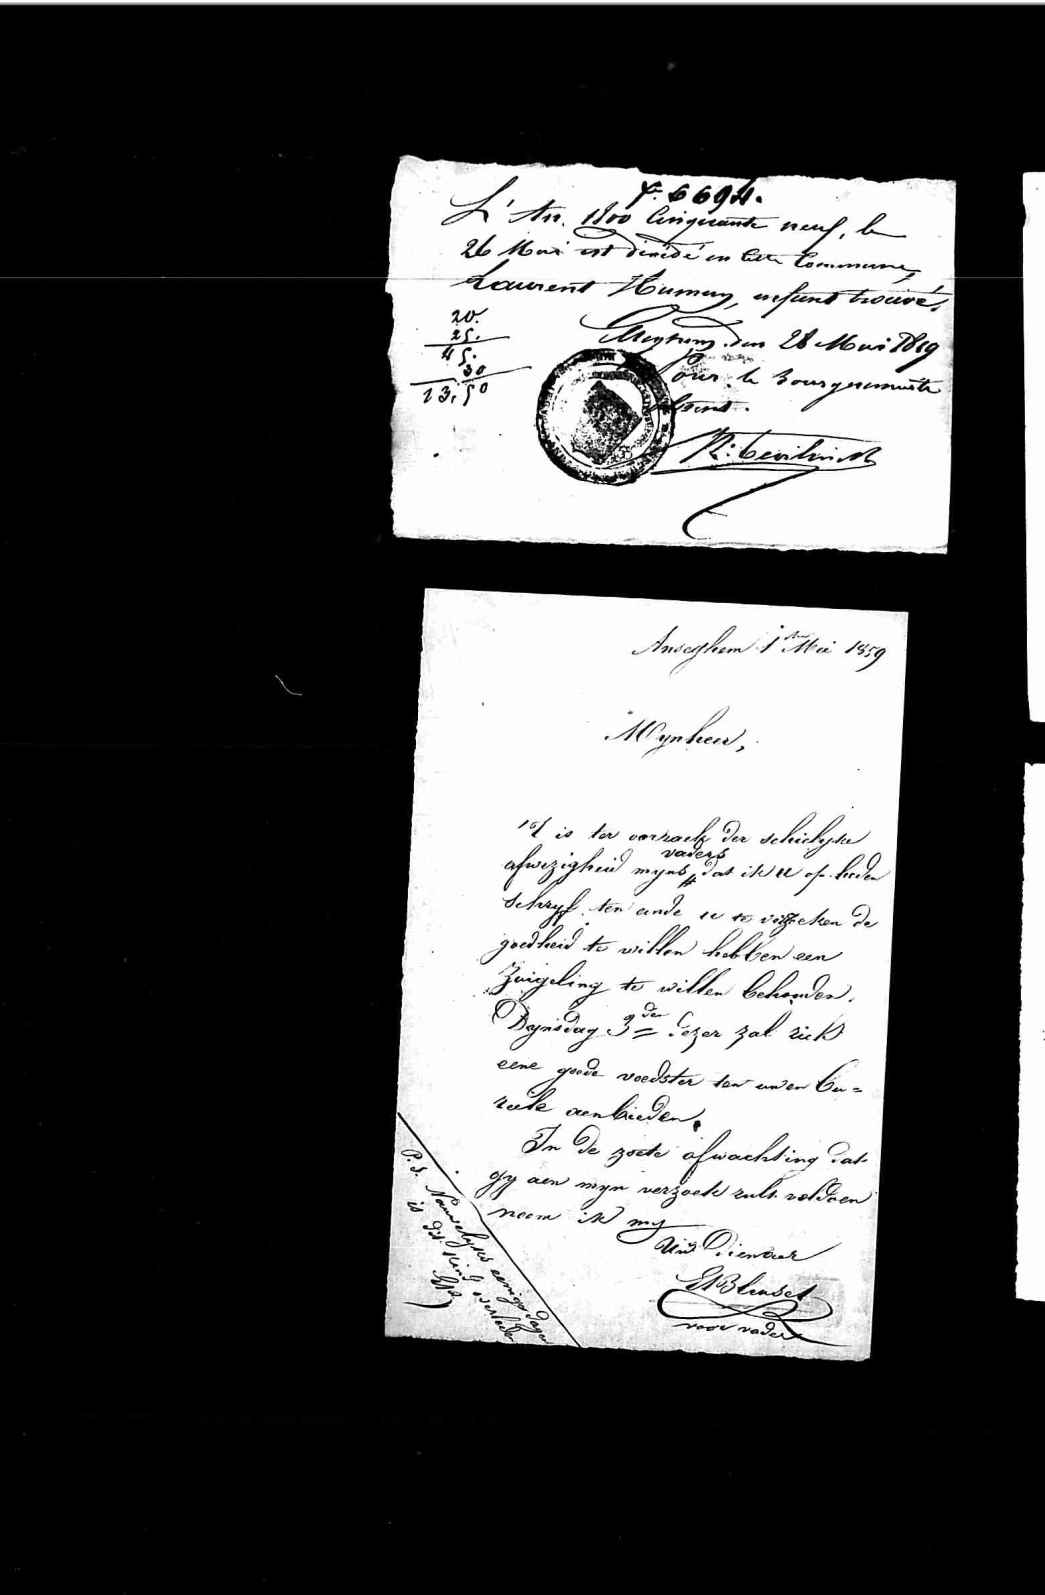 F. 6694.
L'An. 1800 Cinquante neuf, le
26 Mai est décédé en cette Commune,
Laurent Human, enfant trouvé.
20.
25.
45.
30
13.50
den 28 Mai 1859
Pour le Bourgemestre
absent.
Anseghem 1sten Mei 1859
Mynheer,
't is ter oorzaek der schielyke
afwezigheid myns vaders dat ik U op heden
schryf ten einde u te verzoeken de
goedheid te willen hebben een
Zuigeling te willen behouden.
Dynsdag 3den dezer zal zich
eene goede voedster ten uwen bu=
reele aenbieden.
In de zoete afwachting dat
gy aen myn verzoek zult voldoen
neem ik my
Uw Dienaer
voor vader
P.S. Nauwelyks eenige dagen
is dit kind overleden